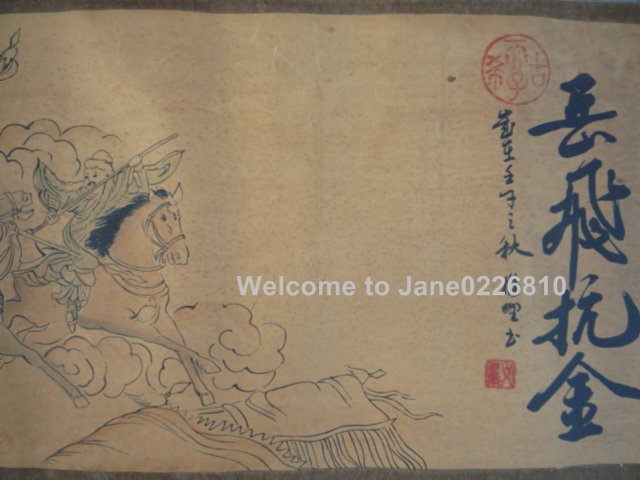 岳飛抗金
古希天子
歲在壬子之秋 书
Welcome to Jane0226810